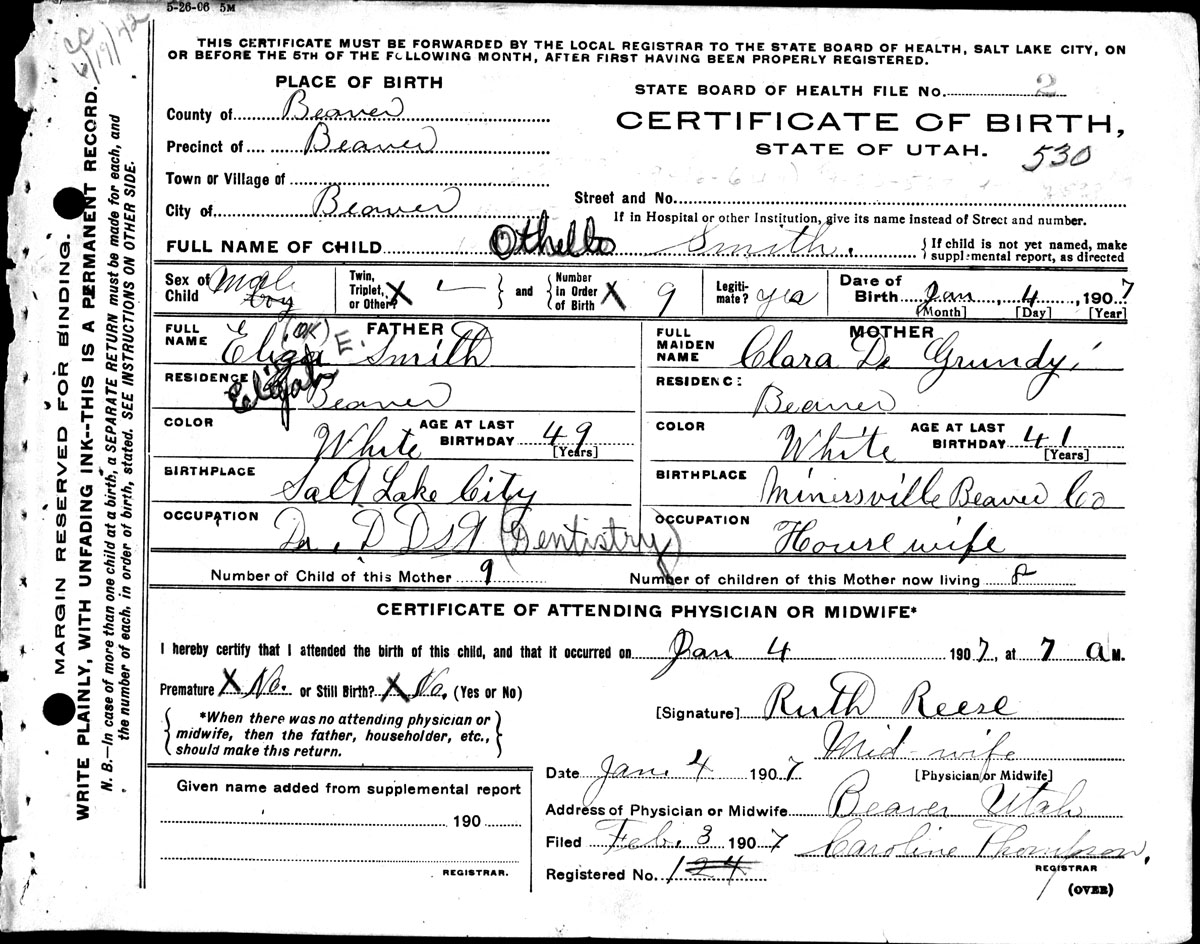 5-26-06 5M
CC
6/19/42
THIS CERTIFICATE MUST BE FORWARDED BY THE LOCAL REGISTRAR TO THE STATE BOARD OF HEALTH, SALT LAKE CITY, ON
OR BEFORE THE 5TH OF THE FOLLOWING MONTH, AFTER FIRST HAVING BEEN PROPERLY REGISTERED.
PLACE OF BIRTH
County of Beaver
Precinct of Beaver
Town or Village of
City of Beaver
STATE BOARD OF HEALTH FILE No. 2
CERTIFICATE OF BIRTH,
STATE OF UTAH.
530
Street and No.
If in Hospital or other Institution, give its name instead of Street and number.
FULL NAME OF CHILD Othello Smith. { If child is not yet named, make
supplemental report, as directed
Sex of Child Male boy
Twin, Triplet, or Other? X and Number in Order of Birth X 9
Legitimate? yes
Date of Birth Jan, 4, 1907
[Month] [Day] [Year]
FATHER
FULL NAME (OK) E. Smith
Elijah
RESIDENCE Beaver
COLOR White AGE AT LAST BIRTHDAY 49
[Years]
BIRTHPLACE Salt Lake City
OCCUPATION Dr. (Dentistry)
MOTHER
FULL MAIDEN NAME Clara De Grundy
RESIDENCE Beaver
COLOR White AGE AT LAST BIRTHDAY 41
[Years]
BIRTHPLACE Minersville Beaver Co
OCCUPATION House wife
Number of Child of this Mother 9 Number of children of this Mother now living 8
CERTIFICATE OF ATTENDING PHYSICIAN OR MIDWIFE*
I hereby certify that I attended the birth of this child, and that it occurred on Jan 4 1907, at 7 a M.
Premature X No. or Still Birth? X No. (Yes or No)
*When there was no attending physician or
midwife, then the father, householder, etc.,
should make this return.
[Signature] Ruth Reese
Mid-wife
[Physician or Midwife]
Date Jan. 4 1907
Address of Physician or Midwife Beaver Utah
Filed Feb. 3 1907 Caroline Thompson,
REGISTRAR
Registered No. 1 24
(OVER)
Given name added from supplemental report
190
REGISTRAR.
MARGIN RESERVED FOR BINDING.
WRITE PLAINLY, WITH UNFADING INK--THIS IS A PERMANENT RECORD.
N. B.—In case of more than one child at a birth, a SEPARATE RETURN must be made for each, and
the number of each, in order of birth, stated. SEE INSTRUCTIONS ON OTHER SIDE.